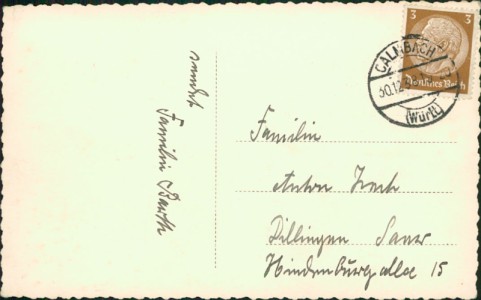 sendet
Familie Barth
3 3
Deutsches Reich
CALMBACH
30.12.
(Württ)
Familie
Anton
Dillingen Saar
Hindenburgallee 15